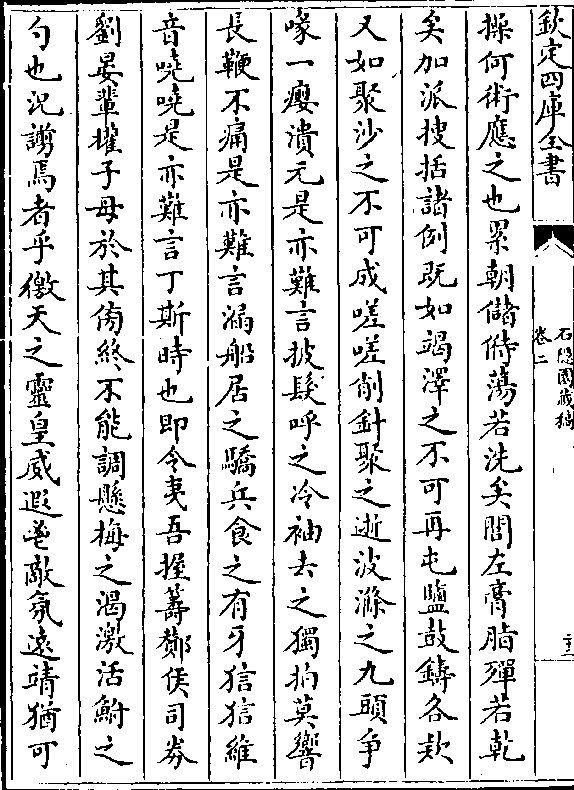 欽定四庫全書
石隱園藏稿
卷二
二十三
操何術應之也累朝儲偫蕩若洗矣閭左膏脂殫若乾
矣加派搜括諸例既如竭澤之不可再屯鹽鼓鑄各款
又如聚沙之不可成嗟嗟削針聚之逝波滌之九頭爭
喙一癭潰元是亦難言披髮呼之冷袖去之獨拍莫響
長鞭不痛是亦難言漏船居之驕兵食之有牙狺狺維
音嘵嘵是亦難言丁斯時也即令夷吾握籌酇侯司券
劉晏輩擢子母於其傍終不能調懸梅之渴激活鮒之
勺也況謭焉者乎徼天之靈皇威遐鬯敵氛遠靖猶可